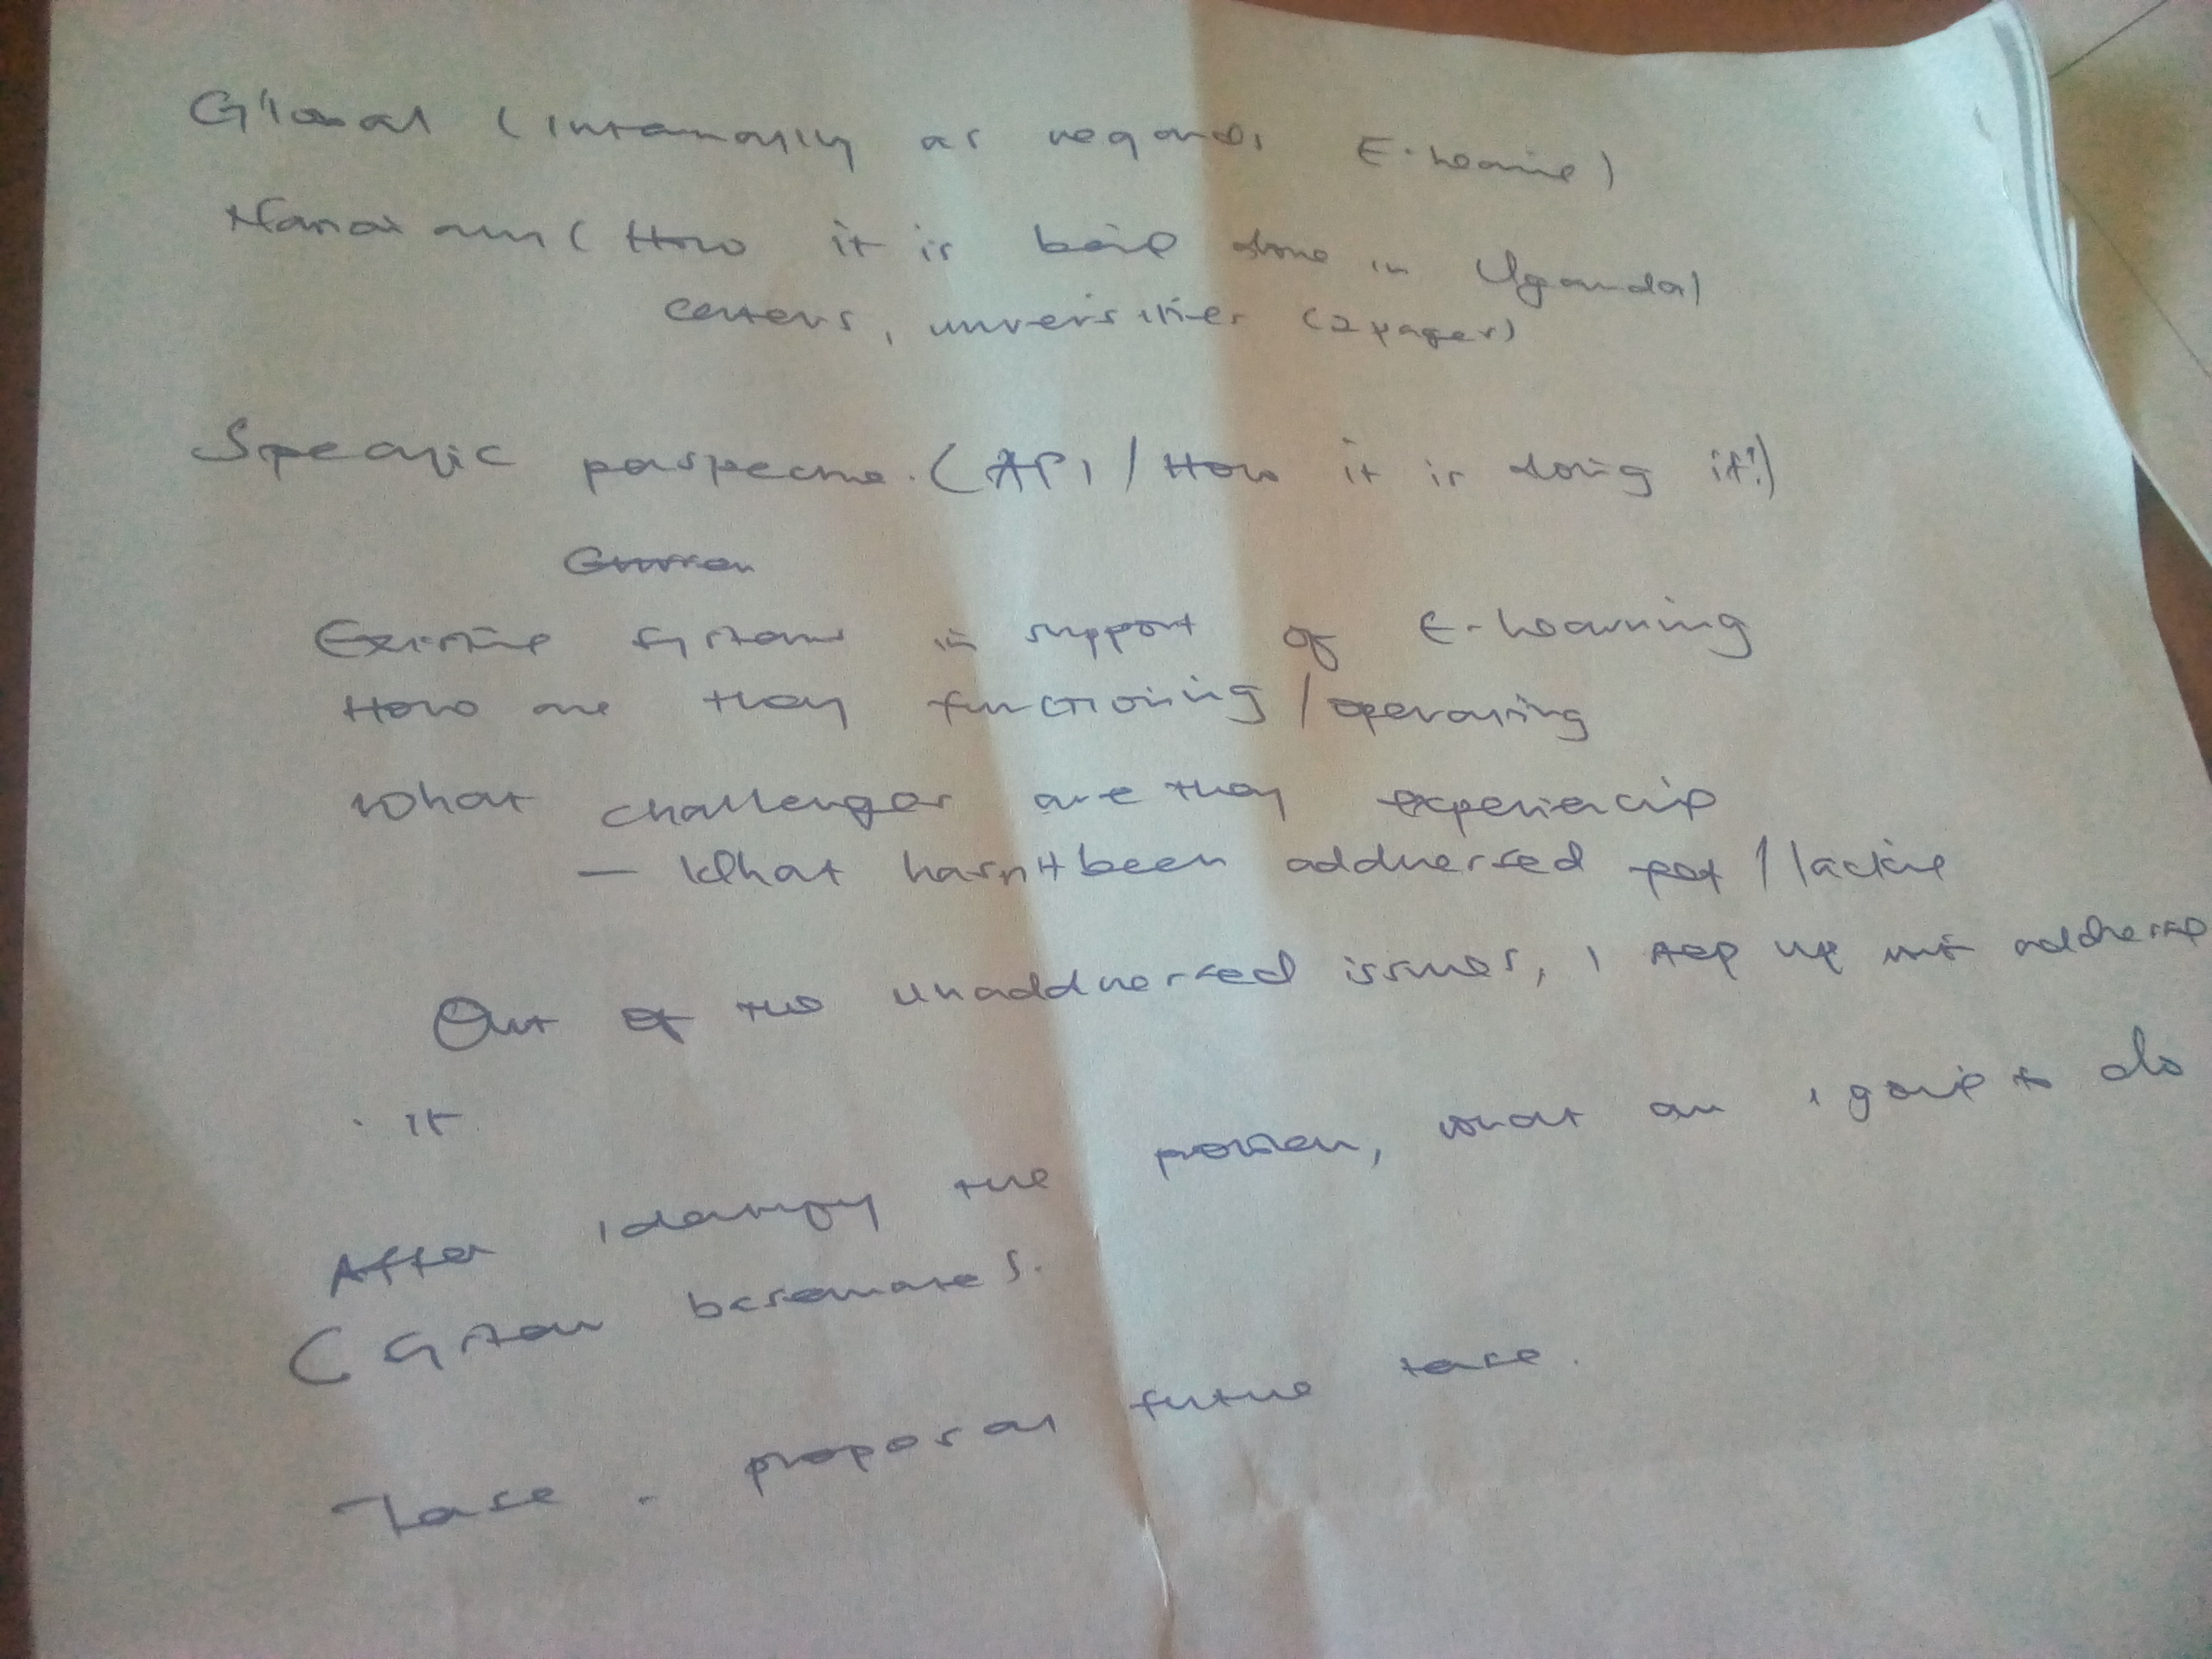 Global (internally as regards E-learning)
National (How it is being done in Uganda)
centers, universities (2 pages)
Specific perspective. (API / How it is doing it?)
Existing systems in support of E-learning
How are they functioning / operating
What challenges are they experiencing
— What hasn't been addressed yet / lacking
Out of the unaddressed issues, I step up address
it
After identify the problem, what am I going to do
(System
- proposal future